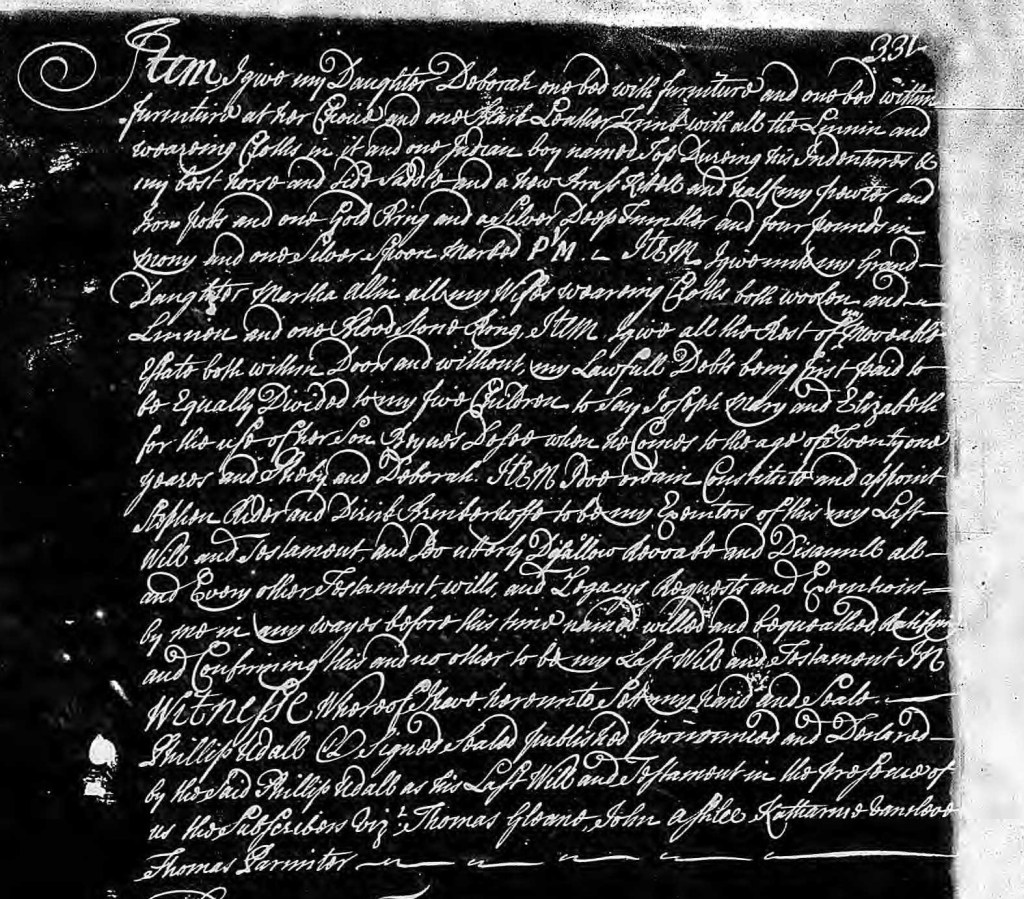 331
Item I give my Daughter Deborah one bed with furniture and one bed within
furniture at her Choice and one Haire Leather Trunk with all the Linnin and
weareing Cloths in it and one Indian boy named Tof Dureing his Indentures &
my best horse and Side Saddle and a new brass Kitell and half my pewter and
Iron pots and one Gold Ring and a Silver Deep Tumbler and four pounds in
mony and one Silver Spoon marked P M. Item I give unto my Grand
Daughter Martha Allin all my Wifes weareing Cloths both woolen and
Linnen and one Blood Stone Rong, Item I give all the Rest of my Moveable
Estate both within Doors and without, my Lawfull Debts being first paid to
be Equally Divided to my five Children to Say Joseph Mary and Elizabeth
for the use of her Son Reynes when he Comes to the age of Twenty one
yeares and Pheby and Deborah. Item I doe ordain Constitute and appoint
Stephen Rider and Dirik Brinkerhoffe to be my Executors of this my Last
Will and Testament, and Do utterly Disallow Revoake and Disannull all
and Every other Testament, wills, and Legacys Requests and Executors
by me in any wayes before this time named willed and bequeathed Ratifying
and Confirming this and no other to be my Last Will and Testament In
Witnesse Whereof I have hereunto Set my hand and Seale.
Phillip Udall Signed Sealed published pronounced and Declared
by the Said Phillip Udall as his Last Will and Testament in the presence of
us the Subscribers Vizt. Thomas Gleane, John Ashlee Katharine vancleve
Thomas Parmiter